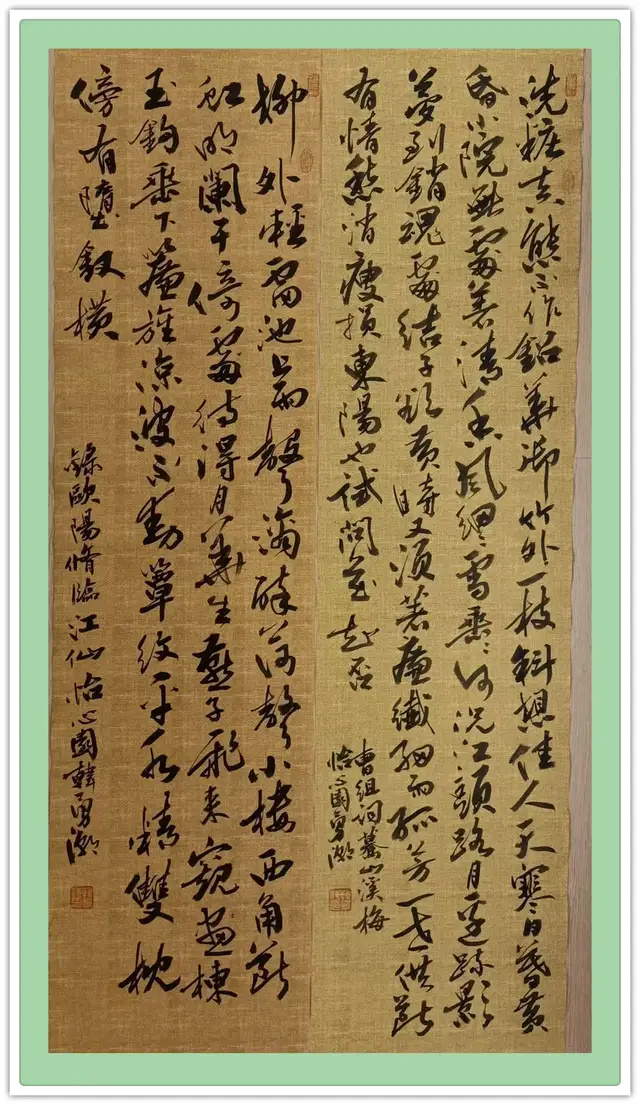 洗粧真態不作鉛華御竹外一枝斜想佳人天寒日暮黃
昏小院無處著清香風細〻雪垂〻何況江頭路月邊疎影
夢到銷魂處結子欲黃時又須著廉纖細雨孤芳一世供斷
有情愁消瘦損東陽也試問花知否
曹組詞驀山溪梅
怡心園勇
柳外輕雷池上雨聲滴碎荷聲小樓西角斷
虹明闌干倚處待得月華生燕子飛來窺畫棟
玉鉤垂下簾旌涼波不動簟紋平水精雙枕
傍有墮釵橫
錄歐陽脩臨江仙怡心園韓勇